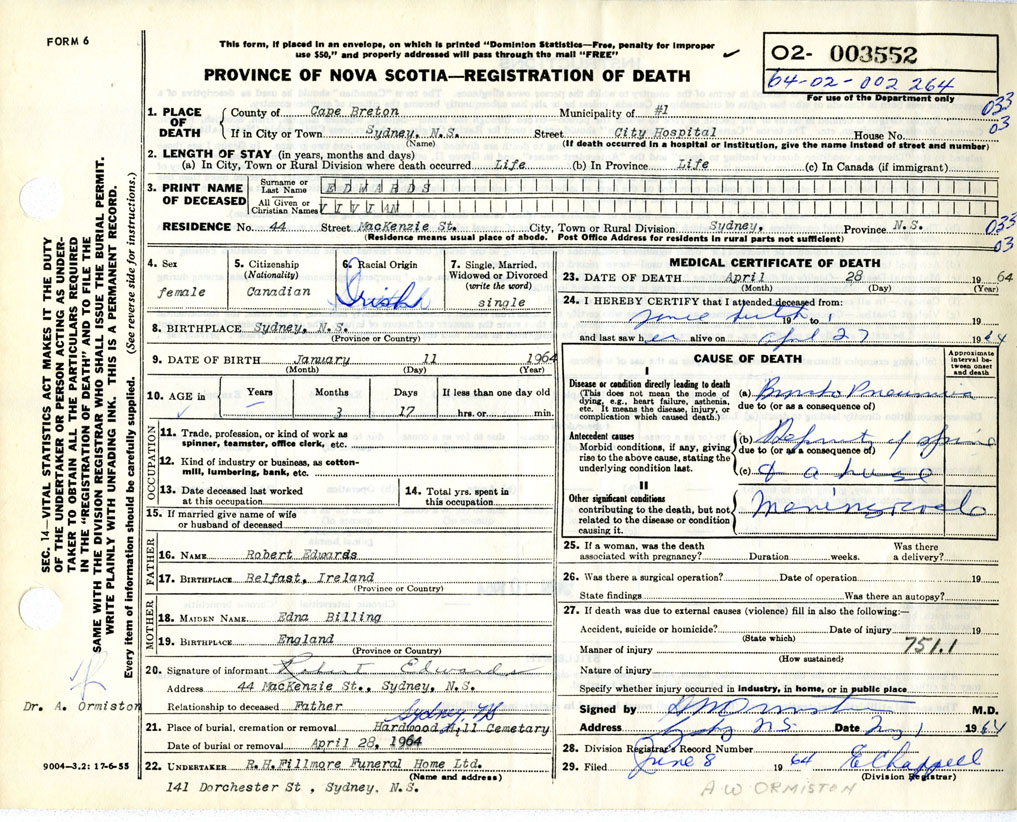 FORM 6
This form, if placed in an envelope, on which is printed "Dominion Statistics—Free, penalty for improper
use $50," and properly addressed will pass through the mail "FREE"
PROVINCE OF NOVA SCOTIA—REGISTRATION OF DEATH
02- 003552
64-02-002 264
For use of the Department only
033
03
1. PLACE OF DEATH
County of Cape Breton Municipality of #1
If in City or Town Sydney, N.S. Street City Hospital House No.
(Name) (If death occurred in a hospital or institution, give the name instead of street and number)
2. LENGTH OF STAY (in years, months and days)
(a) In City, Town or Rural Division where death occurred Life (b) In Province Life (c) In Canada (if immigrant)
3. PRINT NAME OF DECEASED
Surname or Last Name EDWARDS
All Given or Christian Names VIVIAN
RESIDENCE No. 44 Street MacKenzie St. City, Town or Rural Division Sydney, Province N.S.
(Residence means usual place of abode. Post Office Address for residents in rural parts not sufficient)
033
03
4. Sex
female
5. Citizenship
(Nationality)
Canadian
6. Racial Origin
Irish
7. Single, Married,
Widowed or Divorced
(write the word)
single
8. BIRTHPLACE Sydney, N.S.
(Province or Country)
9. DATE OF BIRTH January 11 1964
(Month) (Day) (Year)
10. AGE in Years Months Days If less than one day old
3 17 hrs. or min.
OCCUPATION
11. Trade, profession, or kind of work as
spinner, teamster, office clerk, etc.
12. Kind of industry or business, as cotton-
mill, lumbering, bank, etc.
13. Date deceased last worked
at this occupation
14. Total yrs. spent in
this occupation
15. If married give name of wife
or husband of deceased
FATHER
16. NAME Robert Edwards
17. BIRTHPLACE Belfast, Ireland
(Province or Country)
MOTHER
18. MAIDEN NAME Edna Billing
19. BIRTHPLACE England
(Province or Country)
20. Signature of informant Robert Edwards
Address 44 MacKenzie St., Sydney, N.S.
Relationship to deceased Father
Sydney NS
21. Place of burial, cremation or removal Hardwood Hill Cemetary
Date of burial or removal April 28, 1964
22. UNDERTAKER R.H.Fillmore Funeral Home Ltd.
(Name and address)
141 Dorchester St , Sydney. N.S.
MEDICAL CERTIFICATE OF DEATH
23. DATE OF DEATH April 28 1964
(Month) (Day) (Year)
24. I HEREBY CERTIFY that I attended deceased from:
since birth 19 to 19
and last saw her alive on April 27 1964
CAUSE OF DEATH
Approximate
interval be-
tween onset
and death
I
Disease or condition directly leading to death
(This does not mean the mode of
dying, e.g., heart failure, asthenia,
etc. It means the disease, injury, or
complication which caused death.)
(a) Broncho Pneumonia
due to (or as a consequence of)
Antecedent causes
Morbid conditions, if any, giving
rise to the above cause, stating the
underlying condition last.
(b) of spine
due to (or as a consequence of)
(c) & a huge
II
Other significant conditions
contributing to the death, but not
related to the disease or condition
causing it.
Meningocele
25. If a woman, was the death
associated with pregnancy? Duration weeks. Was there
a delivery?
26. Was there a surgical operation? Date of operation 19
State findings Was there an autopsy?
27. If death was due to external causes (violence) fill in also the following:—
Accident, suicide or homicide? Date of injury 19
(State which)
Manner of injury 751.1
(How sustained)
Nature of injury
Specify whether injury occurred in industry, in home, or in public place
Signed by Ormiston M.D.
Address Sydney N.S. Date May 1 1964
28. Division Registrar's Record Number
29. Filed June 8 1964 E Chappell
(Division Registrar)
A W ORMISTON
SEC. 14—VITAL STATISTICS ACT MAKES IT THE DUTY
OF THE UNDERTAKER OR PERSON ACTING AS UNDER-
TAKER TO OBTAIN ALL THE PARTICULARS REQUIRED
IN THE "REGISTRATION OF DEATH" AND TO FILE THE
SAME WITH THE DIVISION REGISTRAR WHO SHALL ISSUE THE BURIAL PERMIT.
WRITE PLAINLY WITH UNFADING INK. THIS IS A PERMANENT RECORD.
Every item of information should be carefully supplied. (See reverse side for instructions.)
Dr. A. Ormiston
9004-3.2: 17-6-55